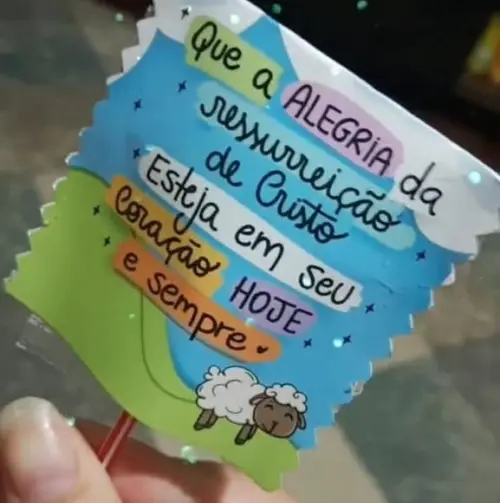 Que a ALEGRIA da
ressurreição
de Cristo
Esteja em seu
coração HOJE
e sempre